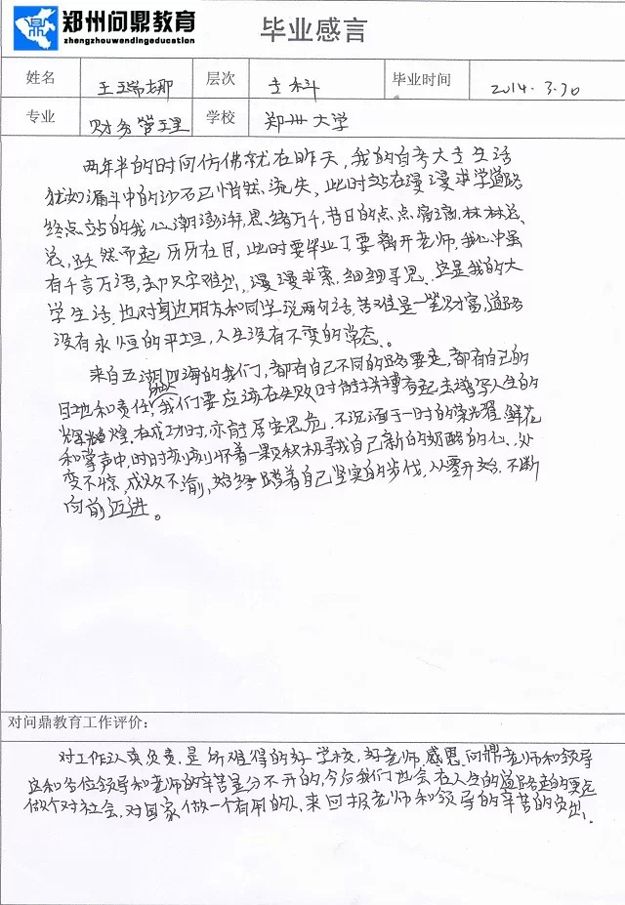 郑州问鼎教育
zhengzhouwendingeducation
毕业感言
姓名 王瑞娜 层次 专科 毕业时间 2014.3.30
专业 财务管理 学校 郑州大学
两年半的时间仿佛就在昨天,我的自考大专生活
犹如漏斗中的沙石已悄然流失、此时站在漫漫求学道路
终点站的我心潮澎湃,思绪万千,昔日的点点滴滴,林林总
总,跃然而起历历在目,此时要毕业了要离开老师,我心中虽
有千言万语,却只字难出,漫漫求索,细细寻思、这是我的大
学生活、也对身边朋友和同学说两句话,苦难是一笔财富,道路
没有永恒的平坦,人生没有不变的常态、。
来自五湖四海的我们,都有自己不同的路要走,都有自己的
目地和责任!我们要应该在失败时能拼搏奋起去谱写人生的
辉煌,在成功时,亦能居安思危,不沉湎于一时的荣耀、鲜花
和掌声中,时时刻刻怀着一颗积极寻找自己新的的心、处
变不惊,成败不渝,始终踏着自己坚实的步伐,从零开始,不断
向前迈进。
对问鼎教育工作评价:
对工作认真负责,是所难得的好学校,好老师,感恩,问鼎老师和领导
这和各位领导和老师的辛苦是分不开的,今后我们也会在人生的道路走的更远
做个对社会,对国家做一个有用的人,来回报老师和领导的辛苦的付出!